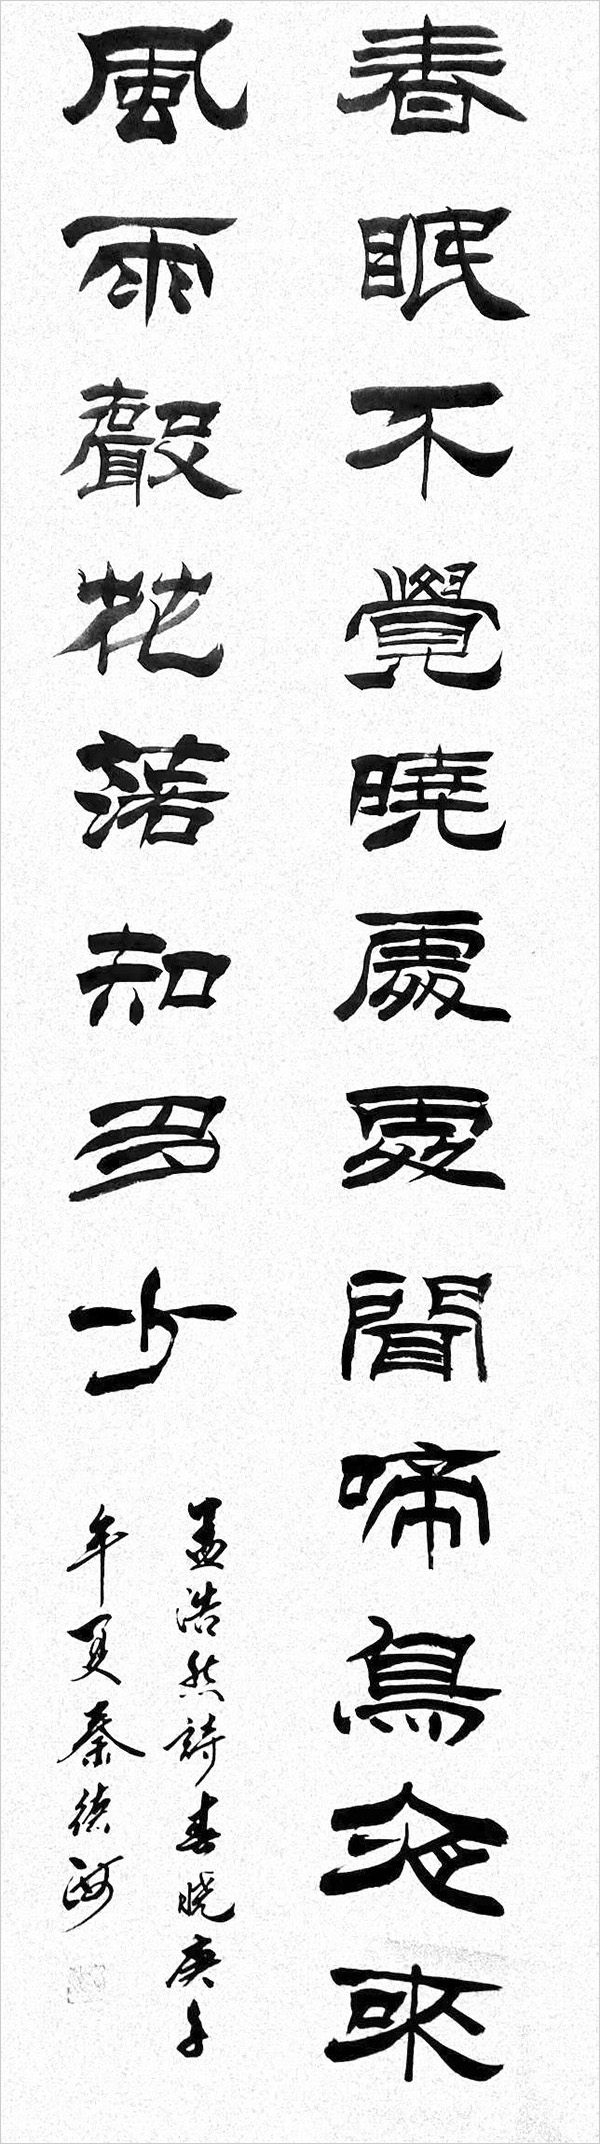 春眠不覺曉處處聞啼鳥夜來
風雨聲花落知多少
孟浩然詩春曉庚子
年夏秦德河